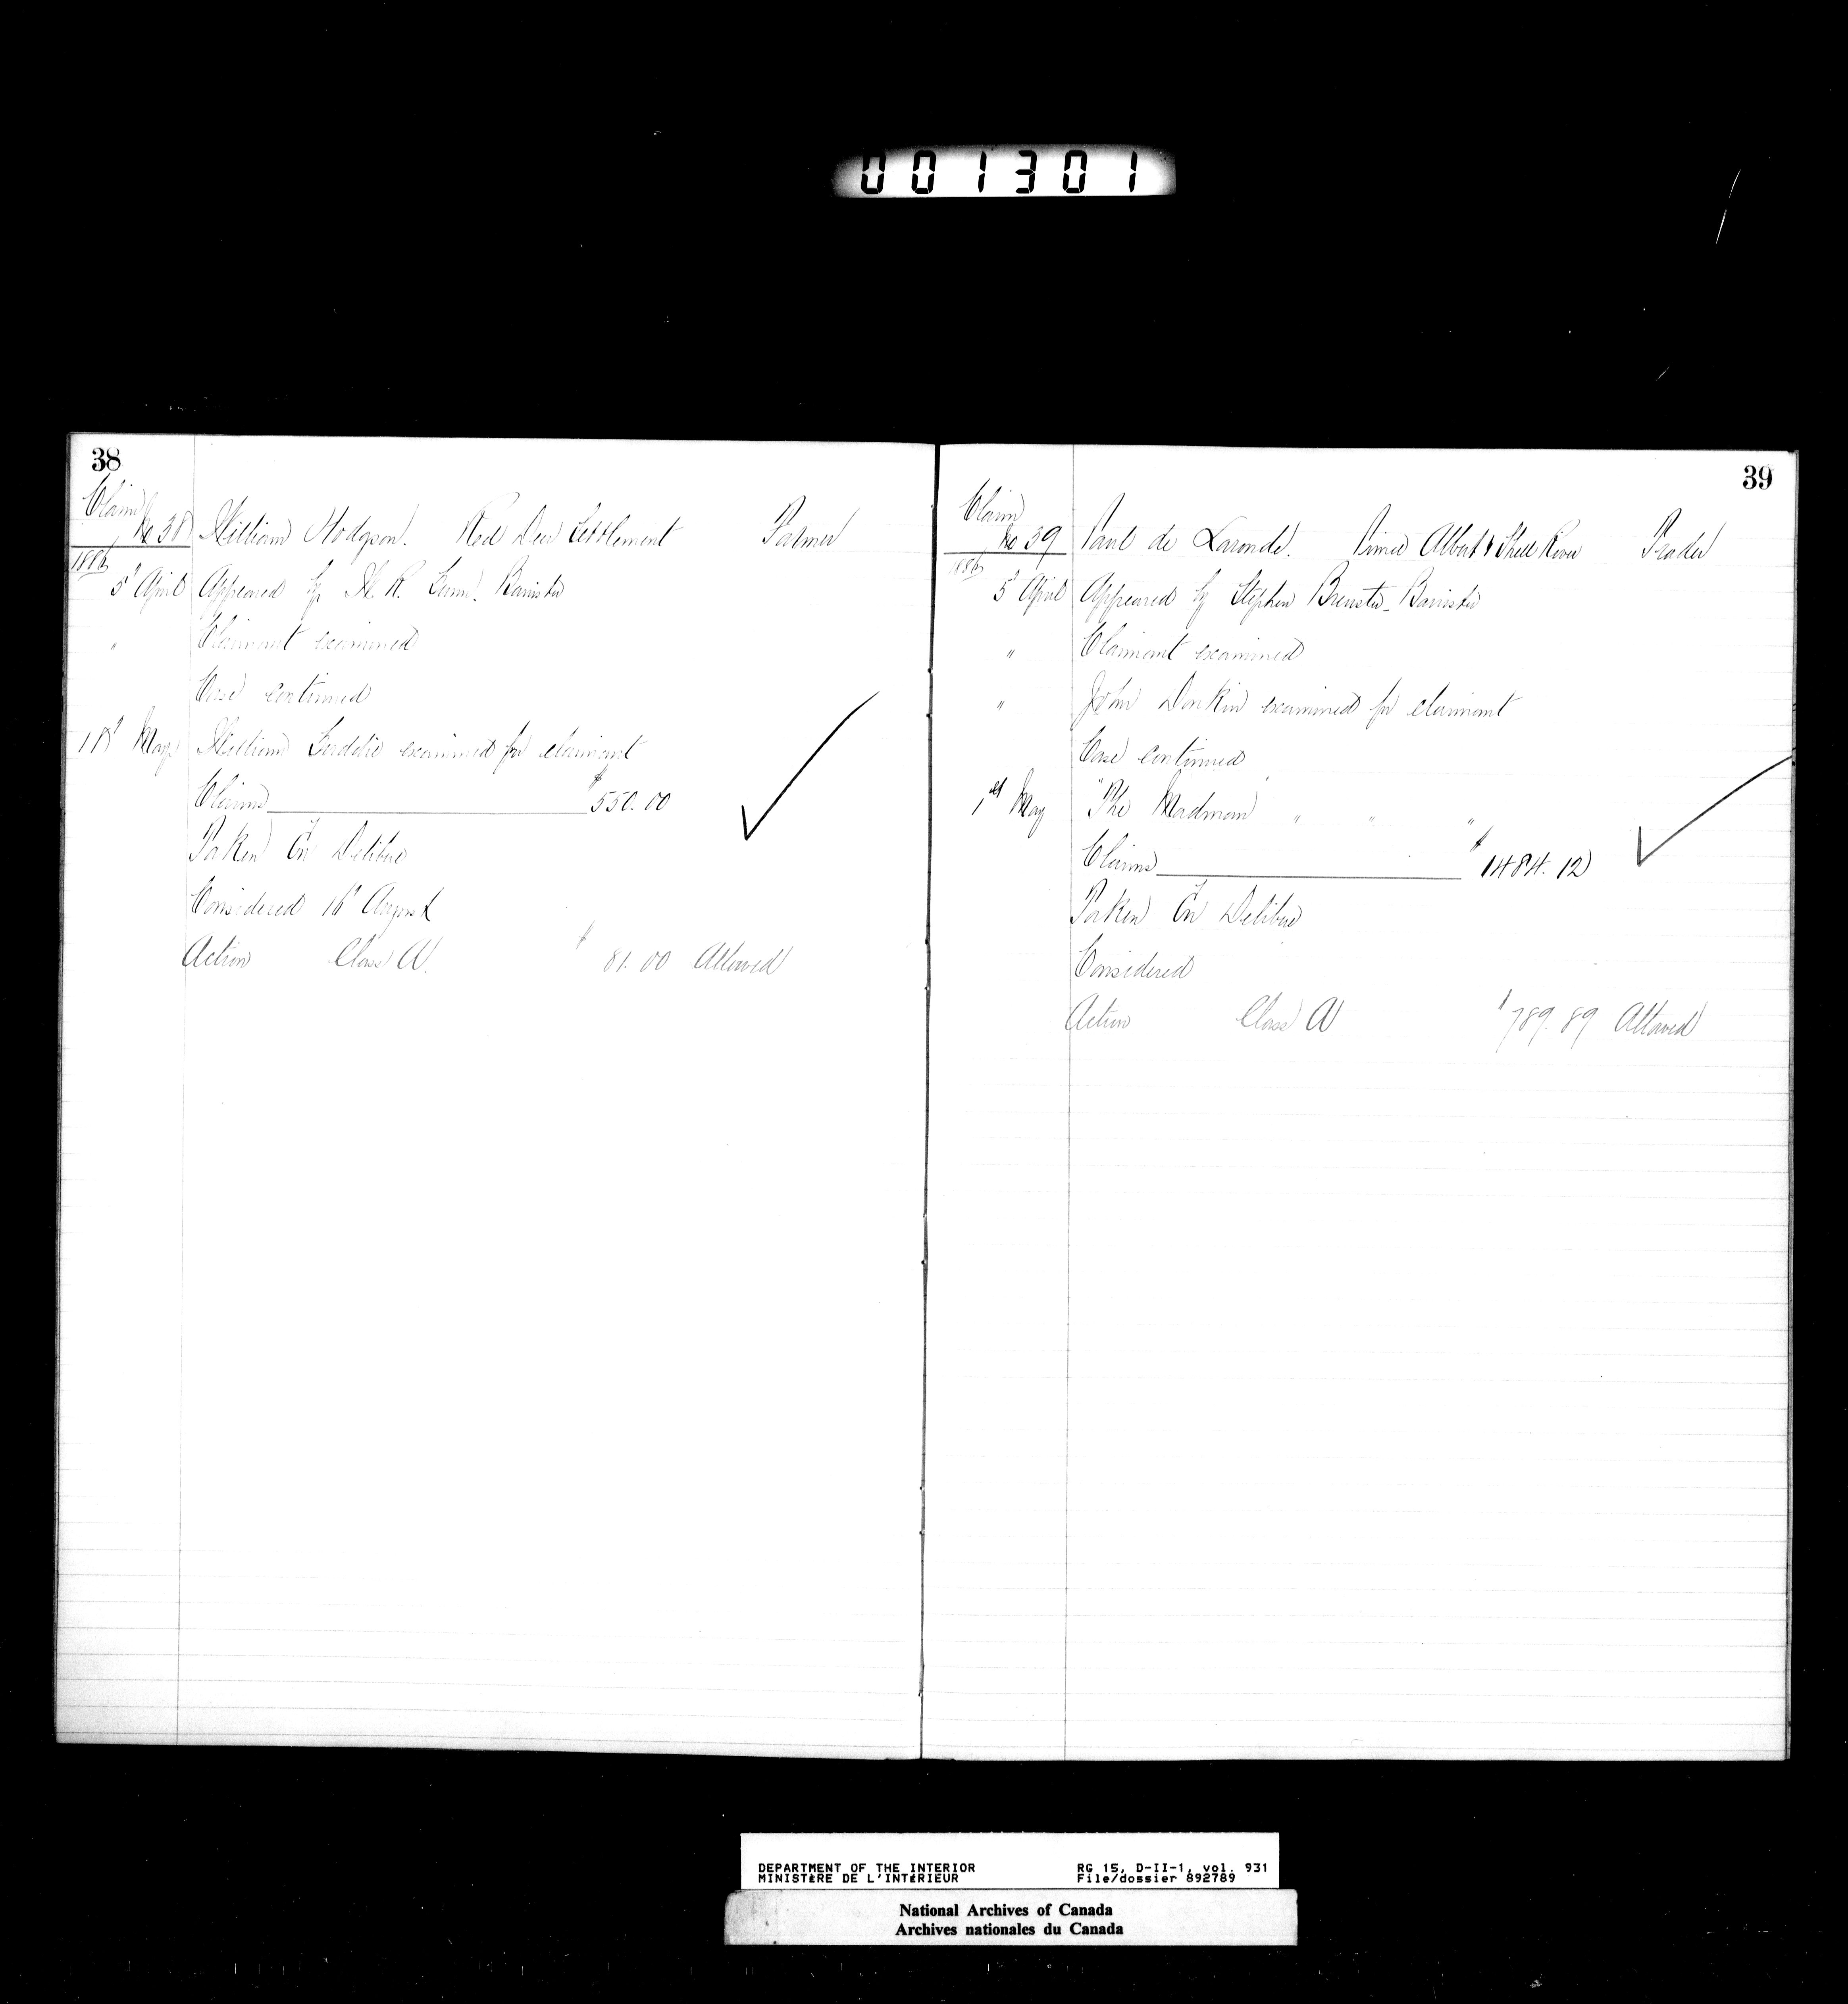 001301
38
Claim
No 38 William Hodgson. Red Deer Settlement Farmer
1886
5th April Appeared by W. R. Gunn. Barrister
" Claimant examined
Case continued
18th May William examined for claimant
Claims $550.00
Taken En Delibre
Considered 16th August
Action Class A. $81.00 Allowed
39
Claim
No 39 Paul de Laronde. Prince Albert & Shell River Trader
1886
5th April Appeared by Stephen Brewster - Barrister
" Claimant examined
" John Donkin examined for claimant
Case continued
1st May "The Madman" " " "
Claims $1484.12
Taken En Delibre
Considered
Action Class A $789.89 Allowed
DEPARTMENT OF THE INTERIOR RG 15, D-II-1, vol. 931
MINISTÈRE DE L'INTÉRIEUR File/dossier 892789
National Archives of Canada
Archives nationales du Canada